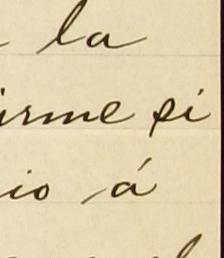 la
irme si
io á